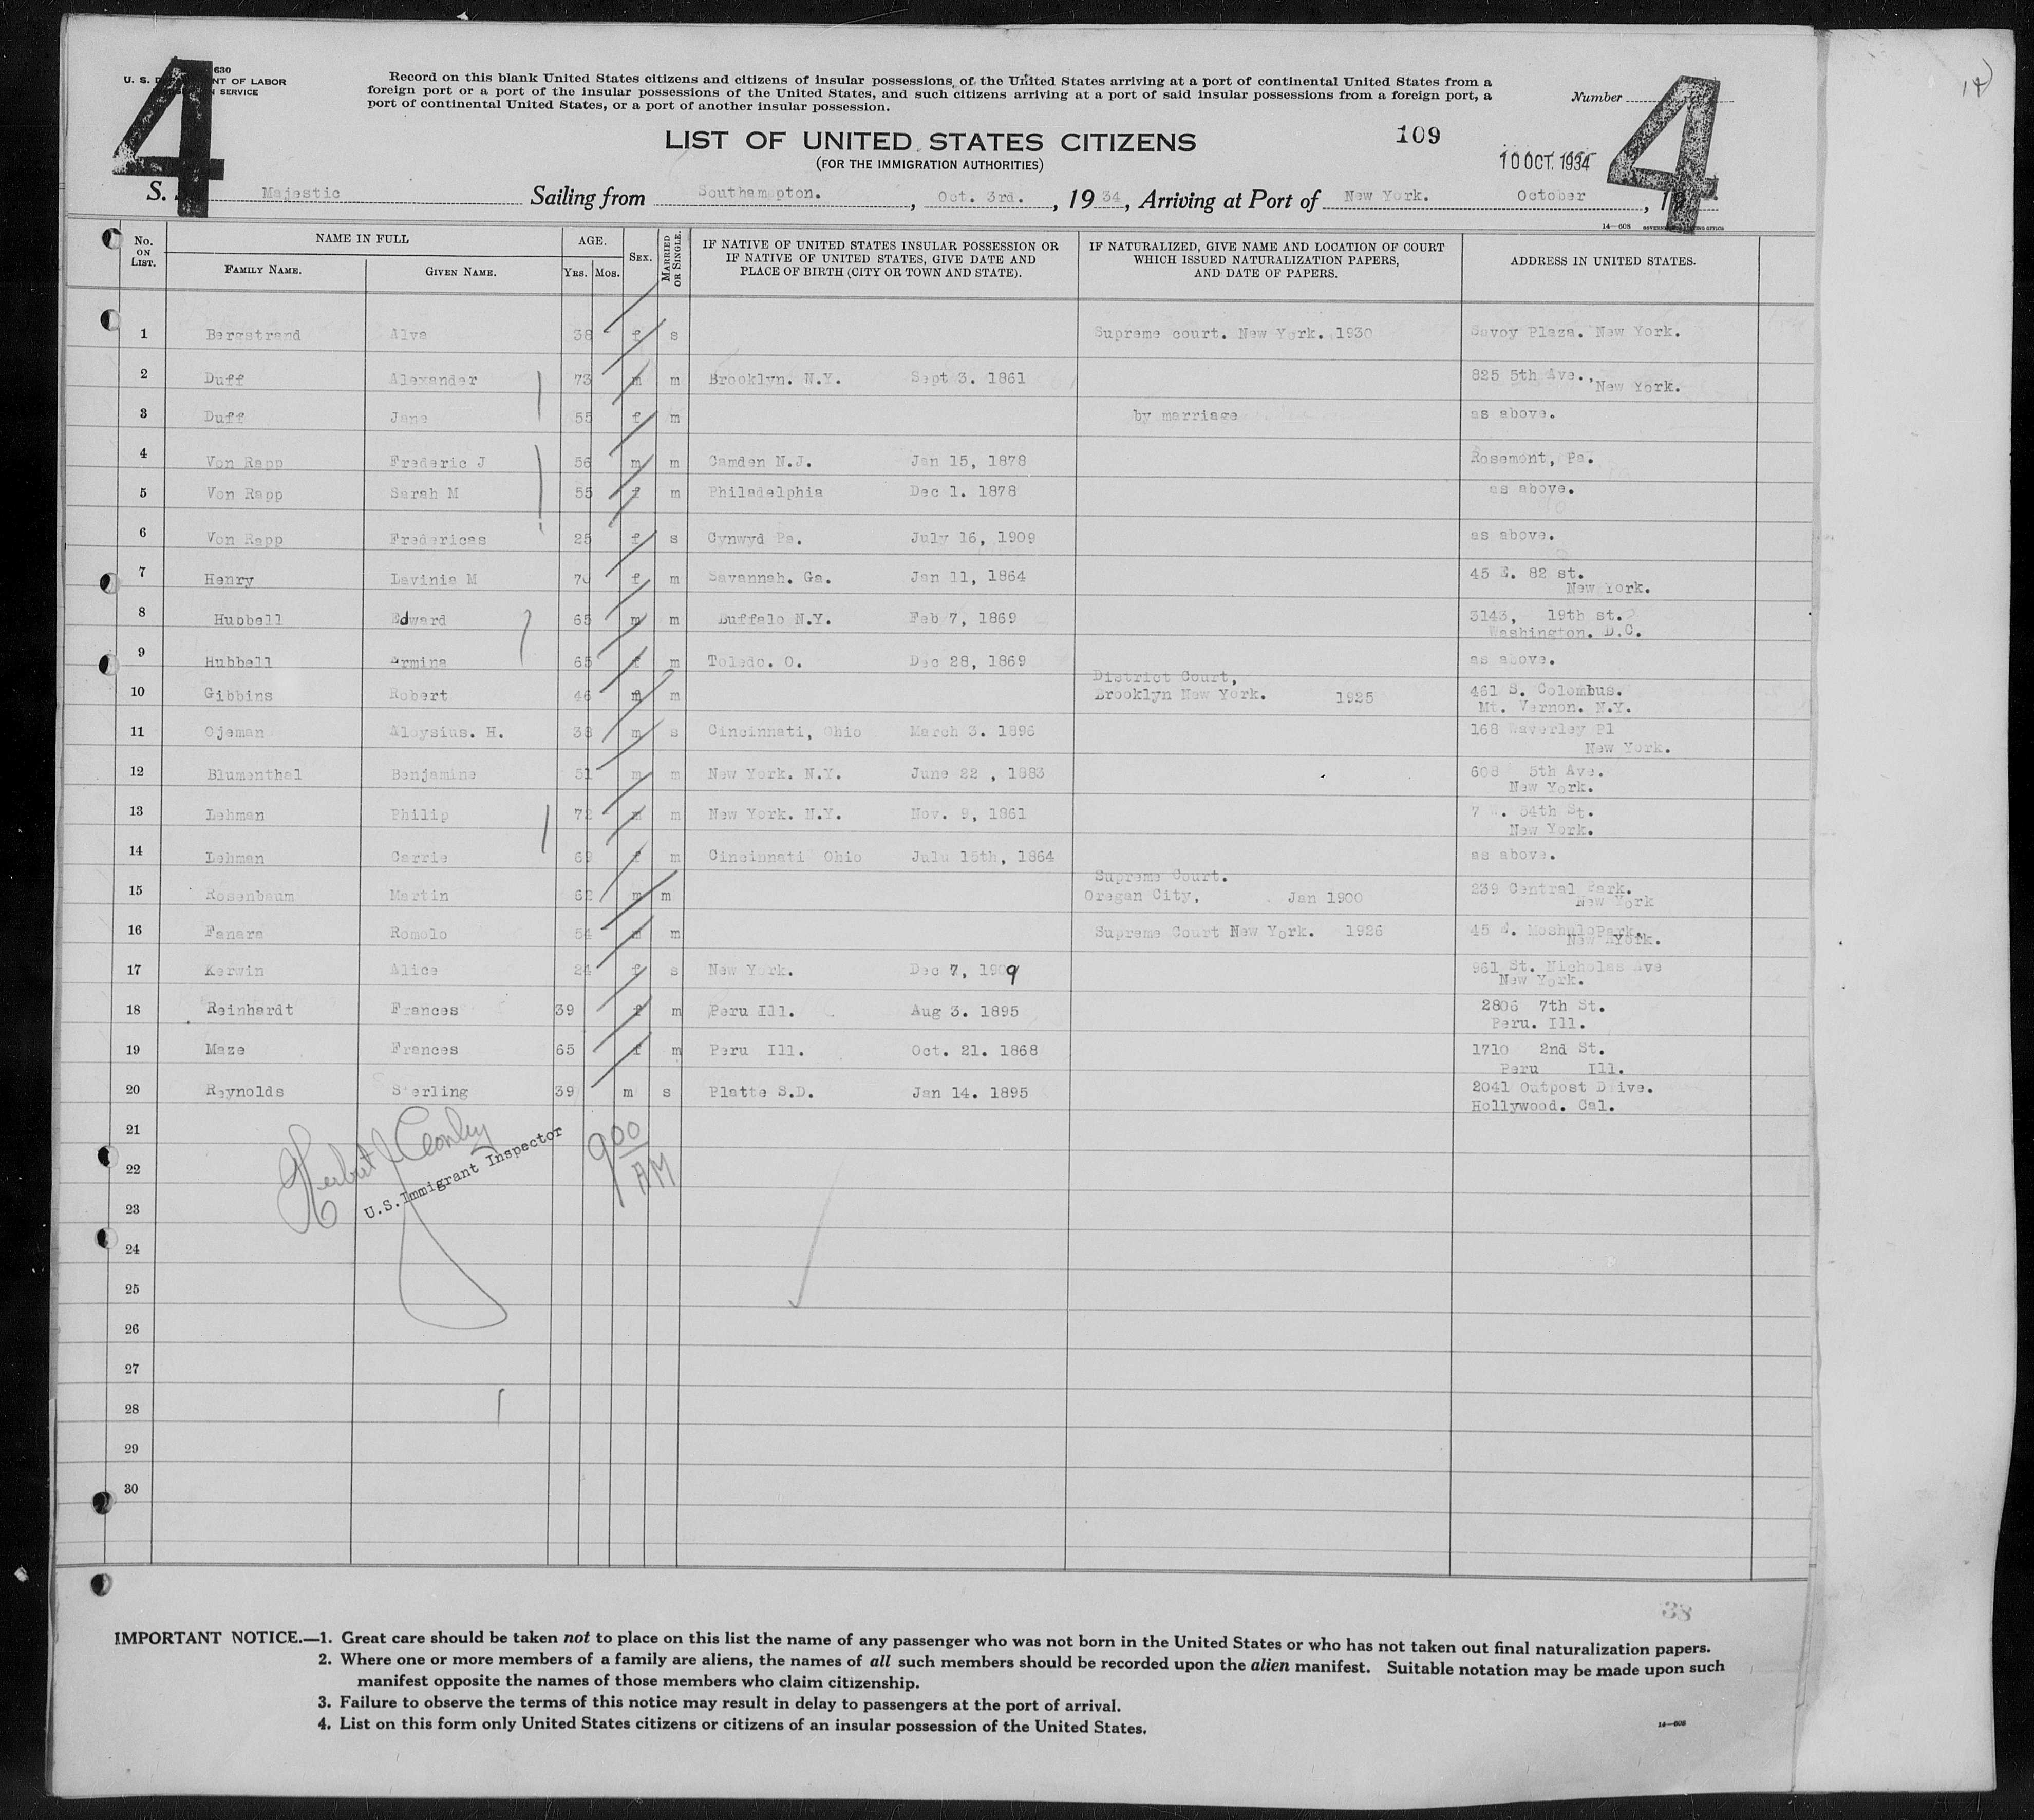 4
630
U. S. D NT OF LABOR
N SERVICE
Record on this blank United States citizens and citizens of insular possessions of the United States arriving at a port of continental United States from a
foreign port or a port of the insular possessions of the United States, and such citizens arriving at a port of said insular possessions from a foreign port, a
port of continental United States, or a port of another insular possession.
Number
4
LIST OF UNITED STATES CITIZENS
(FOR THE IMMIGRATION AUTHORITIES)
109
10 OCT. 1934
S. Majestic Sailing from Southampton. , Oct. 3rd. , 19 34 , Arriving at Port of New York. October , 1
14—608
No. ON LIST.
NAME IN FULL
FAMILY NAME. GIVEN NAME.
AGE.
YRS. MOS.
SEX.
MARRIED OR SINGLE.
IF NATIVE OF UNITED STATES INSULAR POSSESSION OR
IF NATIVE OF UNITED STATES, GIVE DATE AND
PLACE OF BIRTH (CITY OR TOWN AND STATE).
IF NATURALIZED, GIVE NAME AND LOCATION OF COURT
WHICH ISSUED NATURALIZATION PAPERS,
AND DATE OF PAPERS.
ADDRESS IN UNITED STATES.
1 Bergstrand Alva 38 f s Supreme court. New York. 1930 Savoy Plaza. New York.
2 Duff Alexander 73 m m Brooklyn. N.Y. Sept 3. 1861 825 5th Ave., New York.
3 Duff Jane 55 f m by marriage as above.
4 Von Rapp Frederic J 56 m m Camden N.J. Jan 15, 1878 Rosemont, Pa.
5 Von Rapp Sarah M 55 f m Philadelphia Dec 1. 1878 as above.
6 Von Rapp Fredericas 25 f s Cynwyd Pa. July 16, 1909 as above.
7 Henry Lavinia M 70 f m Savannah. Ga. Jan 11, 1864 45 E. 82 st.
New York.
8 Hubbell Edward 65 m m Buffalo N.Y. Feb 7, 1869 3143, 19th st.
Washington. D.C.
9 Hubbell Ermina 65 f m Toledo. O. Dec 28, 1869 as above.
District Court,
10 Gibbins Robert 46 m m Brooklyn New York. 1925 461 S. Colombus.
Mt. Vernon. N.Y.
11 Ojeman Aloysius. H. 38 m s Cincinnati, Ohio March 3. 1896 168 Waverley Pl
New York.
12 Blumenthal Benjamine 51 m m New York. N.Y. June 22 , 1883 608 5th Ave.
New York.
13 Lehman Philip 72 m m New York. N.Y. Nov. 9, 1861 7 W. 54th St.
New York.
14 Lehman Carrie 69 f m Cincinnati Ohio Julu 15th, 1864 as above.
Supreme Court.
15 Rosenbaum Martin 62 m m Oregan City, Jan 1900 239 Central Park.
New York
16 Fanara Romolo 54 m m Supreme Court New York. 1926 45 E. Moshulo Park.
New York.
17 Kerwin Alice 24 f s New York. Dec 7, 1909 961 St. Nicholas Ave
New York.
18 Reinhardt Frances 39 f m Peru Ill. Aug 3. 1895 2806 7th St.
Peru. Ill.
19 Maze Frances 65 f m Peru Ill. Oct. 21. 1868 1710 2nd St.
Peru Ill.
20 Reynolds Sterling 39 m s Platte S.D. Jan 14. 1895 2041 Outpost Drive.
Hollywood. Cal.
21
22
23
24
25
26
27
28
29
30
U.S. Immigrant Inspector
9 00
AM
38
IMPORTANT NOTICE.—1. Great care should be taken not to place on this list the name of any passenger who was not born in the United States or who has not taken out final naturalization papers.
2. Where one or more members of a family are aliens, the names of all such members should be recorded upon the alien manifest. Suitable notation may be made upon such
manifest opposite the names of those members who claim citizenship.
3. Failure to observe the terms of this notice may result in delay to passengers at the port of arrival.
4. List on this form only United States citizens or citizens of an insular possession of the United States.
14—608